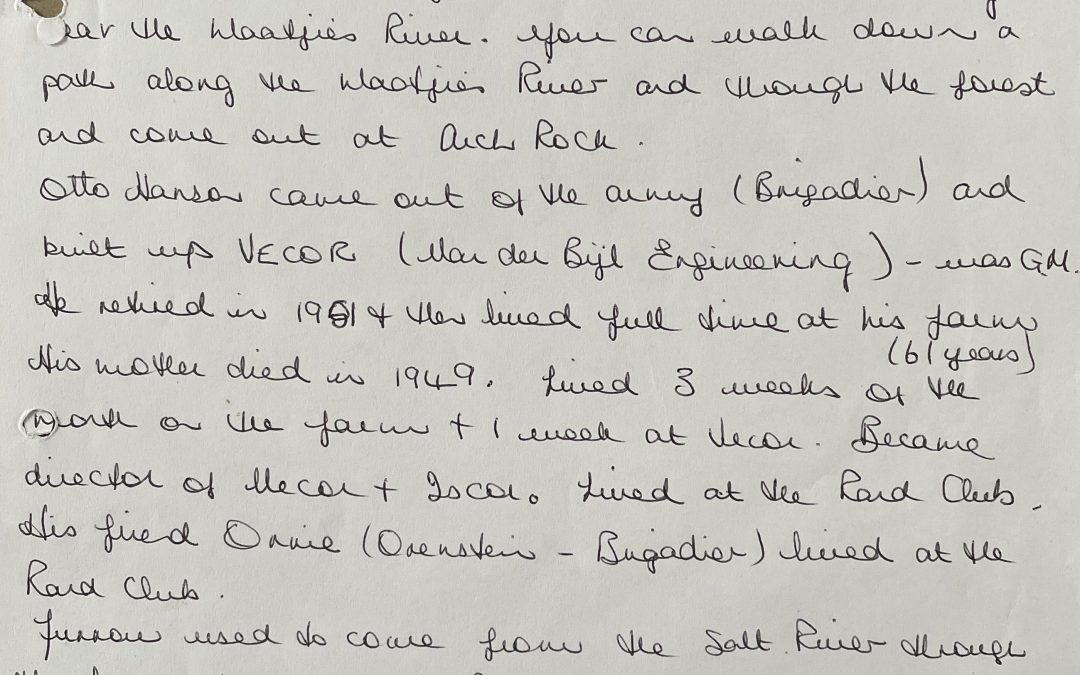 near the Maatjies River. You can walk down a
path along the Maatjies River and through the forest
and come out at Arch Rock.
Otto Hansen came out of the army (Brigadier) and
built up VECOR (Van der Bijl Engineering) - was GM.
He retired in 1961 & then lived full time at his farm
(61 years)
His mother died in 1949. Lived 3 weeks of the
month on the farm + 1 week at Vecor. Became
director of Vecor + Iscor. Lived at the Rand Club.
His friend Ornie (Orenstein - Brigadier) lived at the
Rand Club.
Furrow used to come from the Salt River through